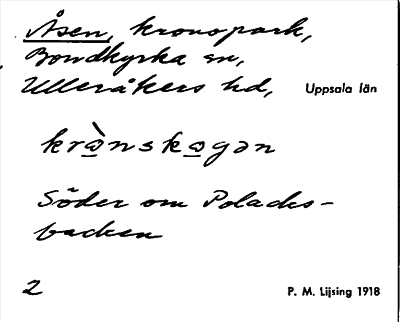 Åsen, kronopark,
Bondkyrka sn,
Ulleråkers hd, Uppsala län
krò̲nsko̲gən
Söder om Polacks-
backen
2 P. M. Lijsing 1918